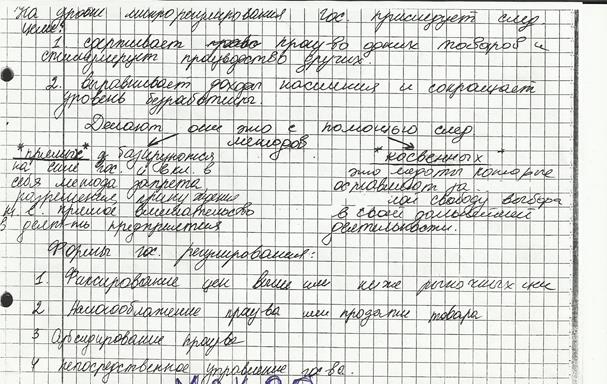 На уровне микрорегулирования гос. приследует след
цели:
1. сдерживает произ-во одних товаров и
стимулирует производство других.
2. выравнивает доходы населения и сокращает
уровень безработицы.
Делают они это с помощью след
методов
"прямые" базируются
на силе гос. и вкл. в
себя метода запрета,
разрешения, принуждения
т. е. прямое вмешательство
в деят-ть предприятия
"косвенных"
это методы которые
оставляют за
свободу выбора
в своей дальнейшей
деятельности.
Формы гос. регулирования:
1. Фиксирование цен выше или ниже рыночных цен
2 Налогообложение произ-ва или продажи товара
3 Субсидирование произ-ва
4 непосредственное управление гос-ва.